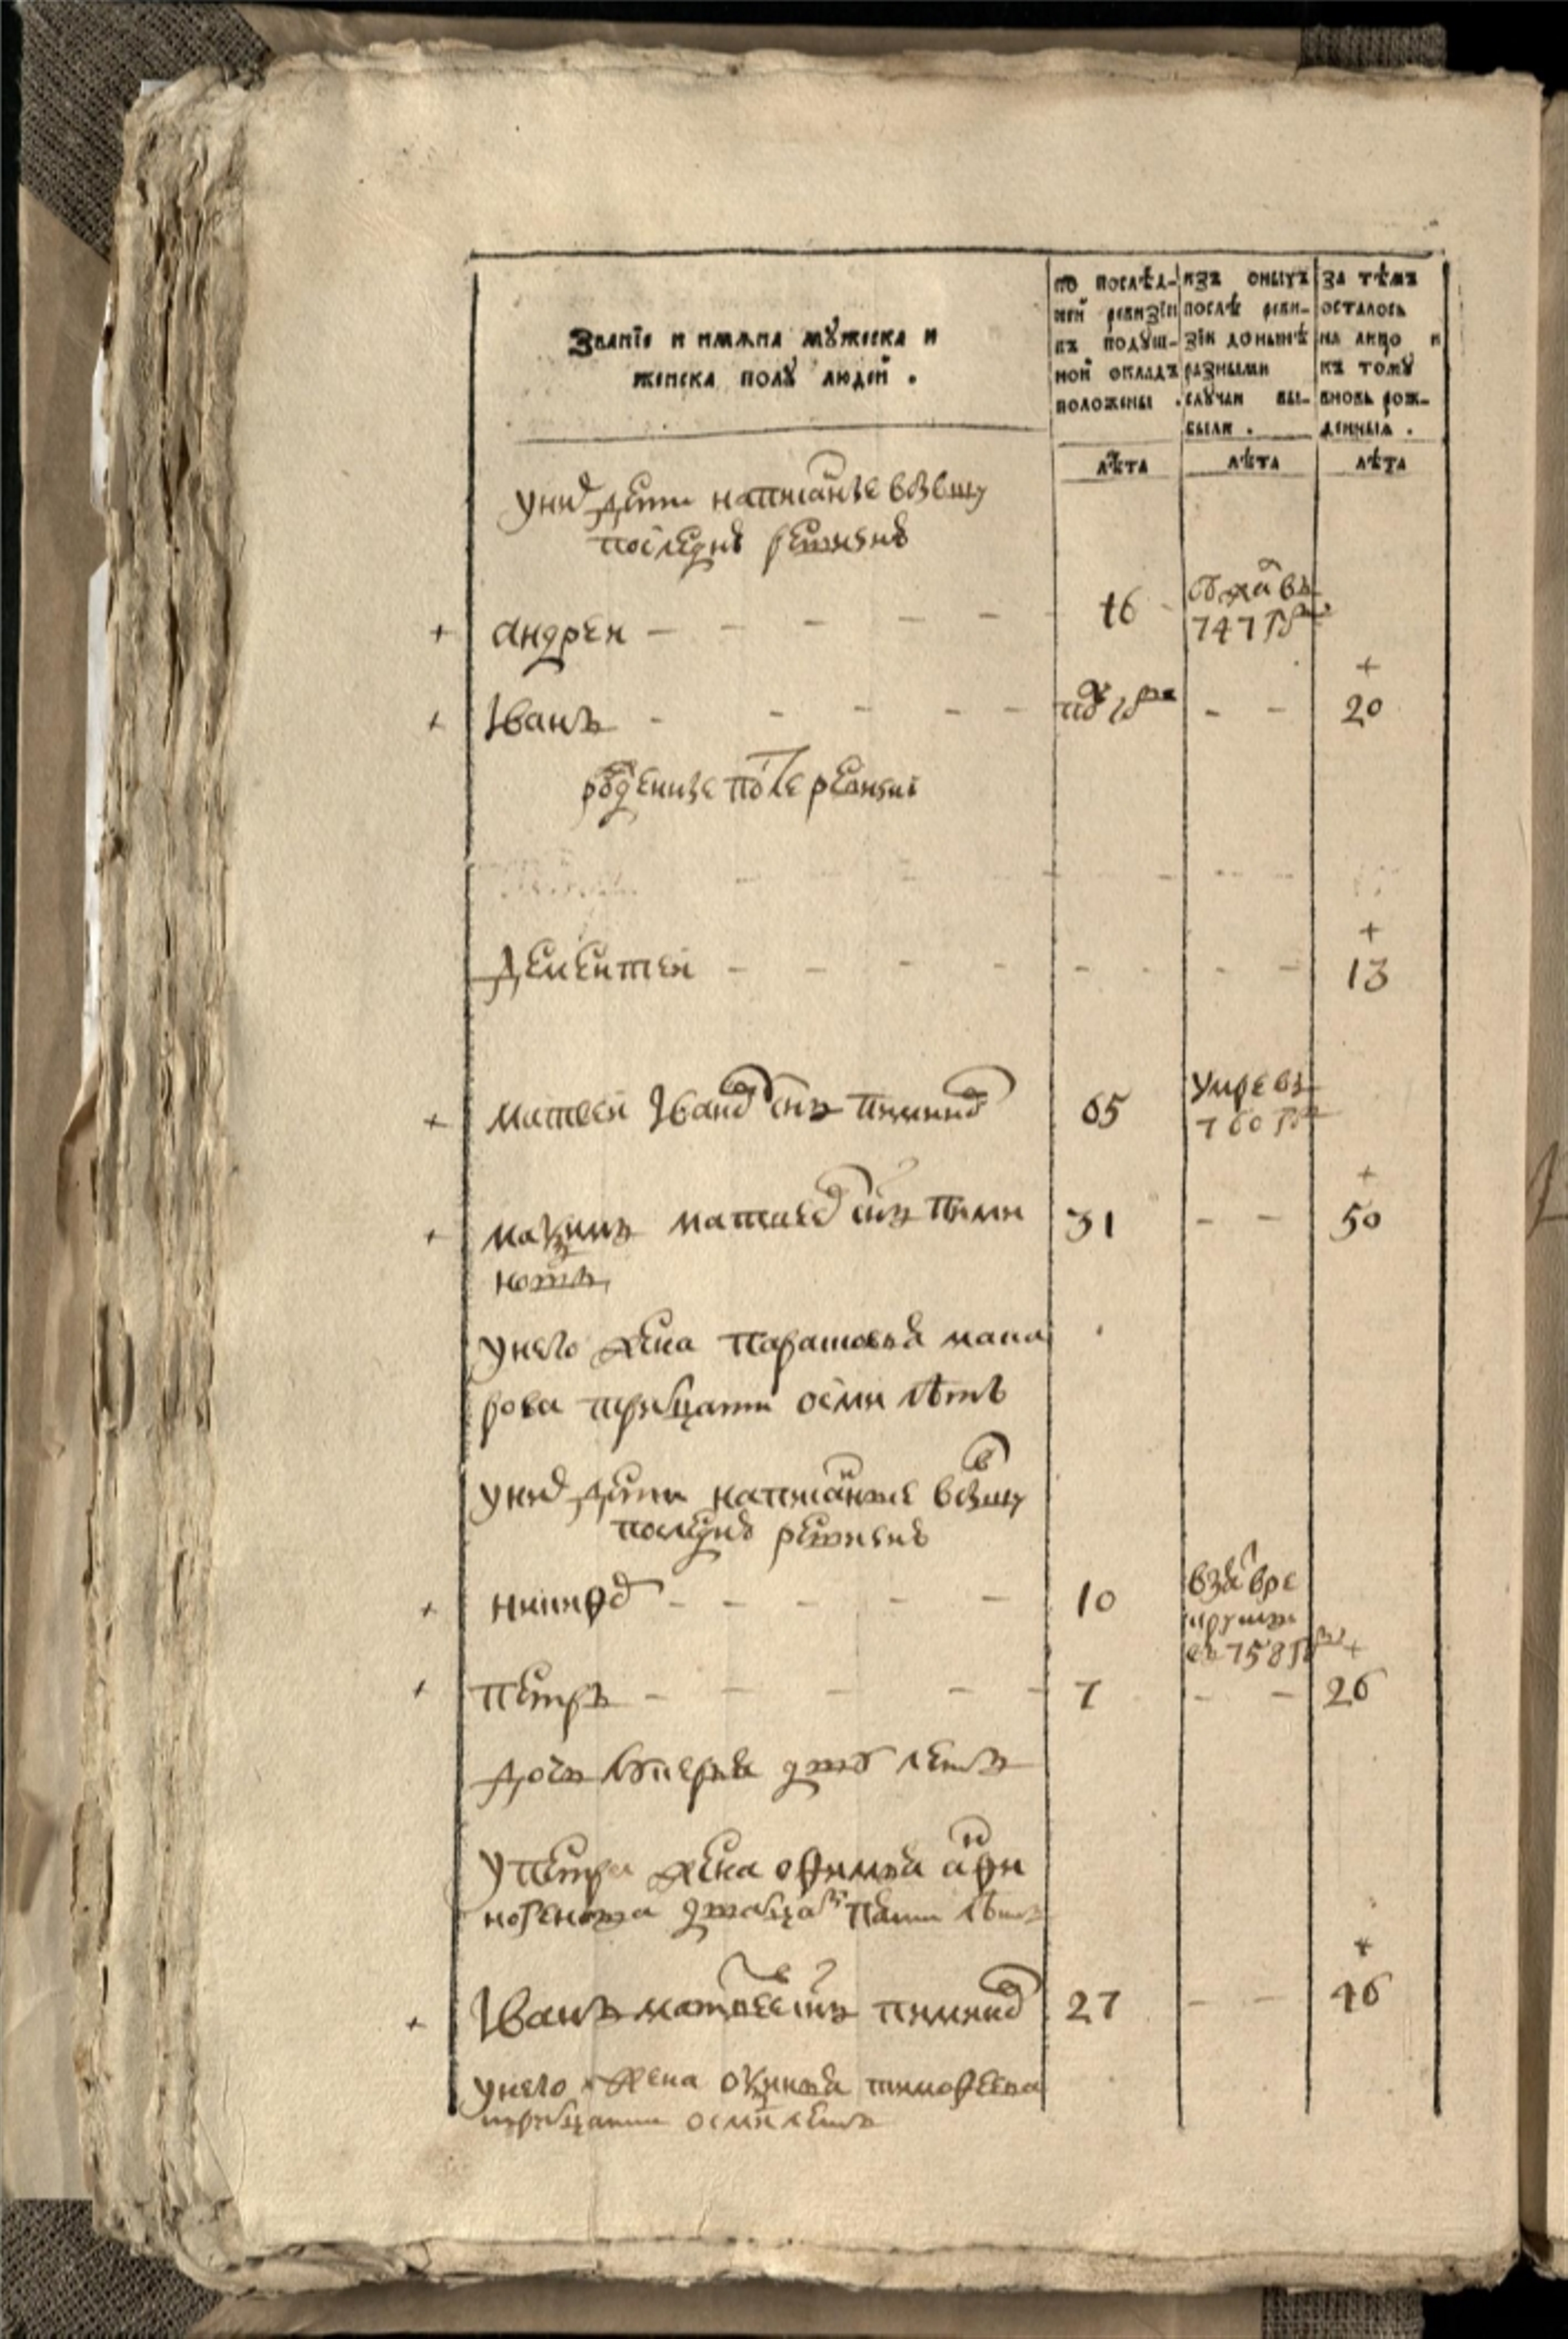 Званїе и имяна мꙋжеска и
женска полꙋ людей .
по послѣд-
ней ревизїи
въ подꙋш-
ной окладъ
положены .
изъ оныхъ
послѣ реви-
зїи донынѣ
разными
слꙋчаи вы-
были .
за тѣмъ
осталось
на лицо и
къ томꙋ
вновь рож-
денныя .
лѣта
лѣта
лѣта
у них дети написаные в бывшую
последнюю ревизию
+ андреи - - - - - 16
747 году
+ Іванъ - - - - - - - +
20
рожденные после ревизиi
Дементей - - - - - - - +
13
+ матвеи Іванов снъ пиминов 65 умре въ
760 году
+ маѯимъ матвеев снъ пими 31 - - +
50
новъ
у него жена парасковья мака
рова тритцати осми лѣтъ
у них дети написаные в бывшую
последнюю ревизию
+ 10 взят в ре
круты
въ 758 году
+ петръ - - - - - 7 - - +
26
дочь дву летъ
у петра жена офимья
дватцать пяти лѣтъ
+ Іванъ матвеев снъ пиминов 27 - - +
46
у него жена оѯинья тимофеева
тритцати осми летъ